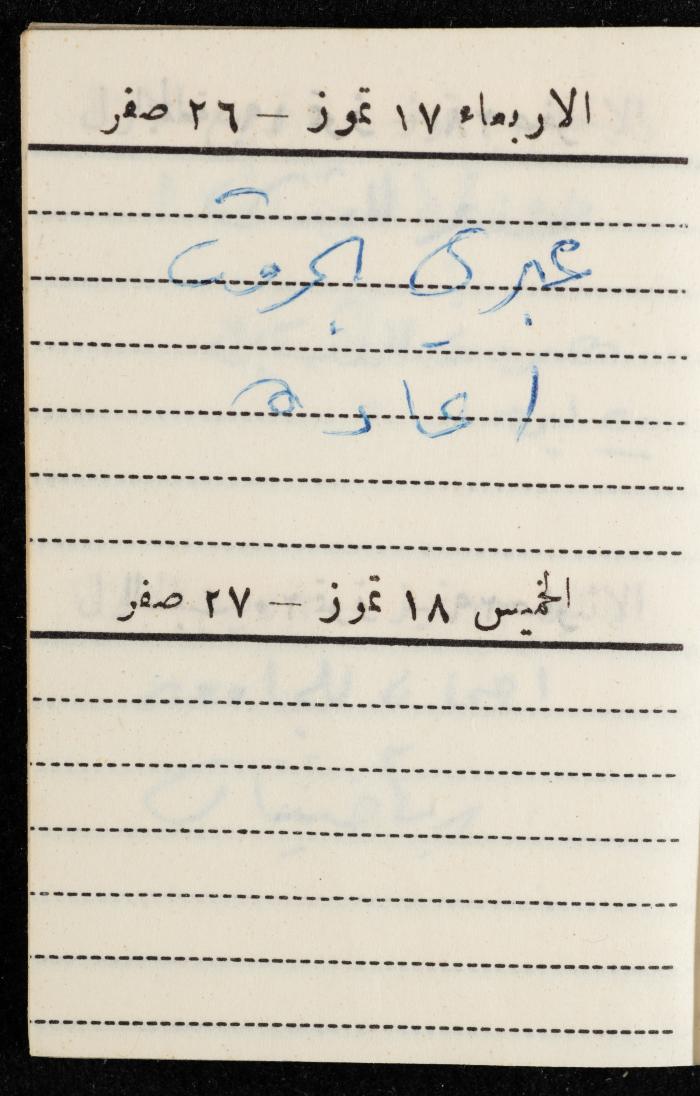 الاربعاء ١٧ تموز — ٢٦ صفر
عبري
اعاده
الخميس ١٨ تموز — ٢٧ صفر